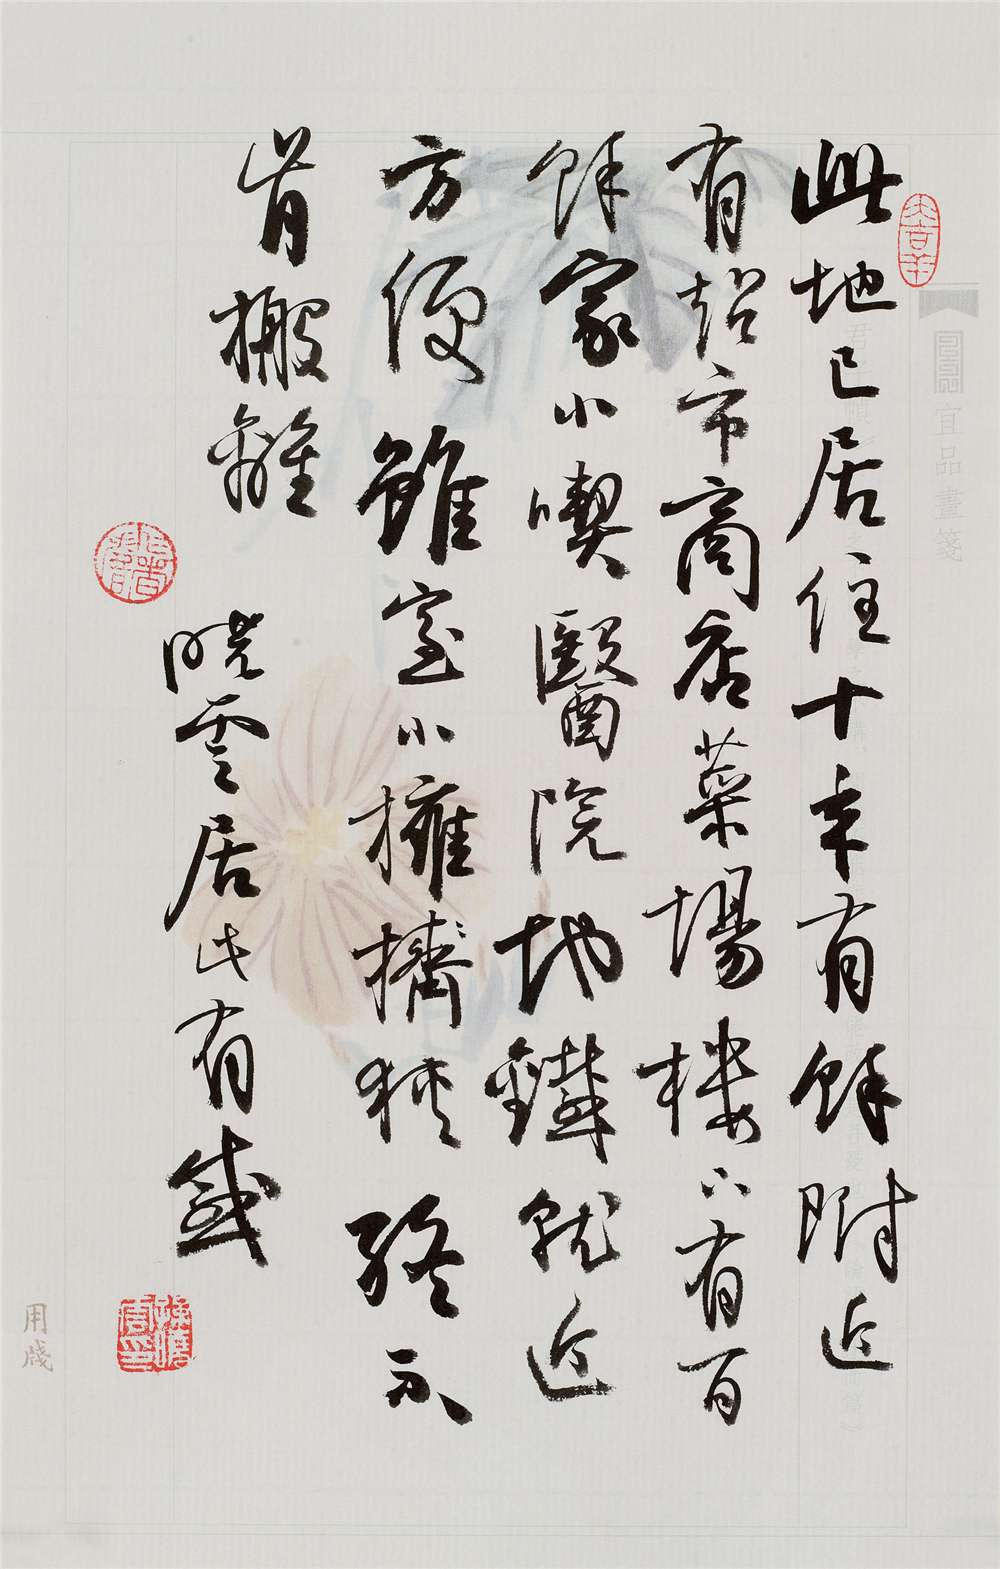 此地已居住十年有餘附近
有超市商店菜場樓下有百
餘家小喫醫院地鐵就近
方便雖室小擁擠狹終不
肯搬離
曉雲居此有感
宜品畫箋
用箋